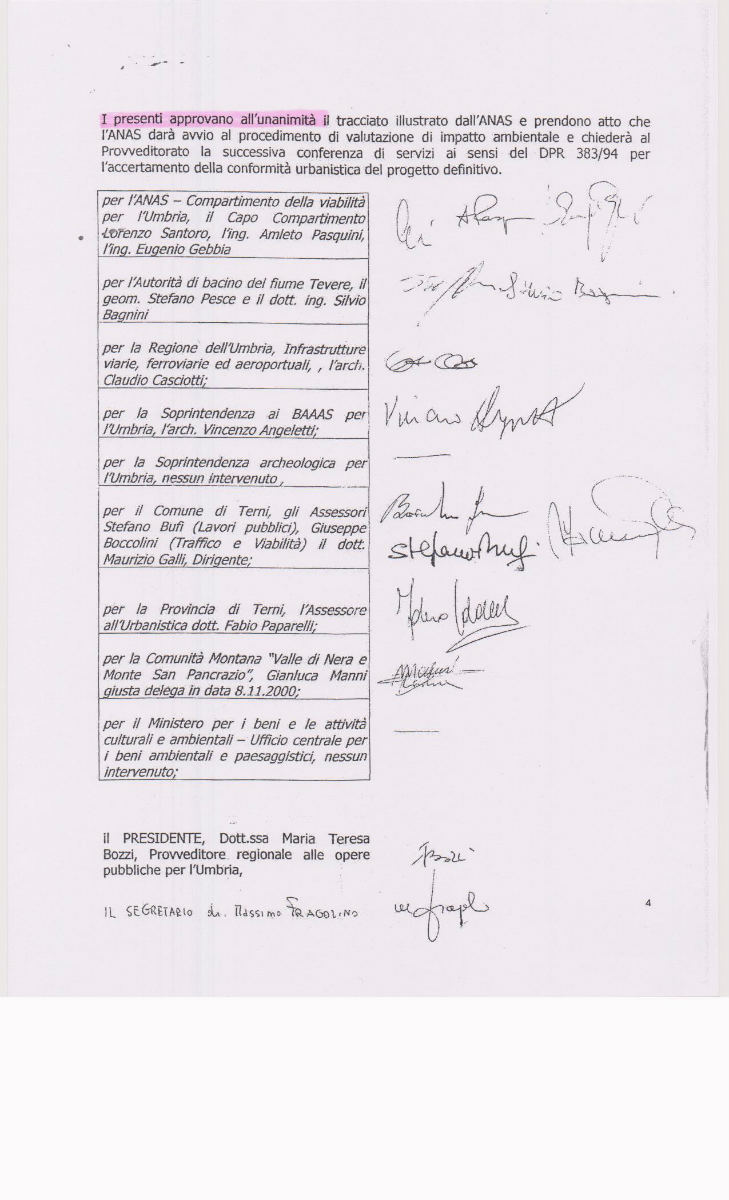 I presenti approvano all'unanimità il tracciato illustrato dall'ANAS e prendono atto che
l'ANAS darà avvio al procedimento di valutazione di impatto ambientale e chiederà al
Provveditorato la successiva conferenza di servizi ai sensi del DPR 383/94 per
l'accertamento della conformità urbanistica del progetto definitivo.
per l'ANAS – Compartimento della viabilità
per l'Umbria, il Capo Compartimento
Lorenzo Santoro, l'ing. Amleto Pasquini,
l'ing. Eugenio Gebbia
per l'Autorità di bacino del fiume Tevere, il
geom. Stefano Pesce e il dott. ing. Silvio
Bagnini
Silvio Bagnini
per la Regione dell'Umbria, Infrastrutture
viarie, ferroviarie ed aeroportuali, , l'arch.
Claudio Casciotti;
per la Soprintendenza ai BAAAS per
l'Umbria, l'arch. Vincenzo Angeletti;
per la Soprintendenza archeologica per
l'Umbria, nessun intervenuto,
per il Comune di Terni, gli Assessori
Stefano Bufi (Lavori pubblici), Giuseppe
Boccolini (Traffico e Viabilità) il dott.
Maurizio Galli, Dirigente;
Stefano Bufi
per la Provincia di Terni, l'Assessore
all'Urbanistica dott. Fabio Paparelli;
per la Comunità Montana "Valle di Nera e
Monte San Pancrazio", Gianluca Manni
giusta delega in data 8.11.2000;
per il Ministero per i beni e le attività
culturali e ambientali – Ufficio centrale per
i beni ambientali e paesaggistici, nessun
intervenuto;
il PRESIDENTE, Dott.ssa Maria Teresa
Bozzi, Provveditore regionale alle opere
pubbliche per l'Umbria,
IL SEGRETARIO dr. Massimo FRAGOLINO
4